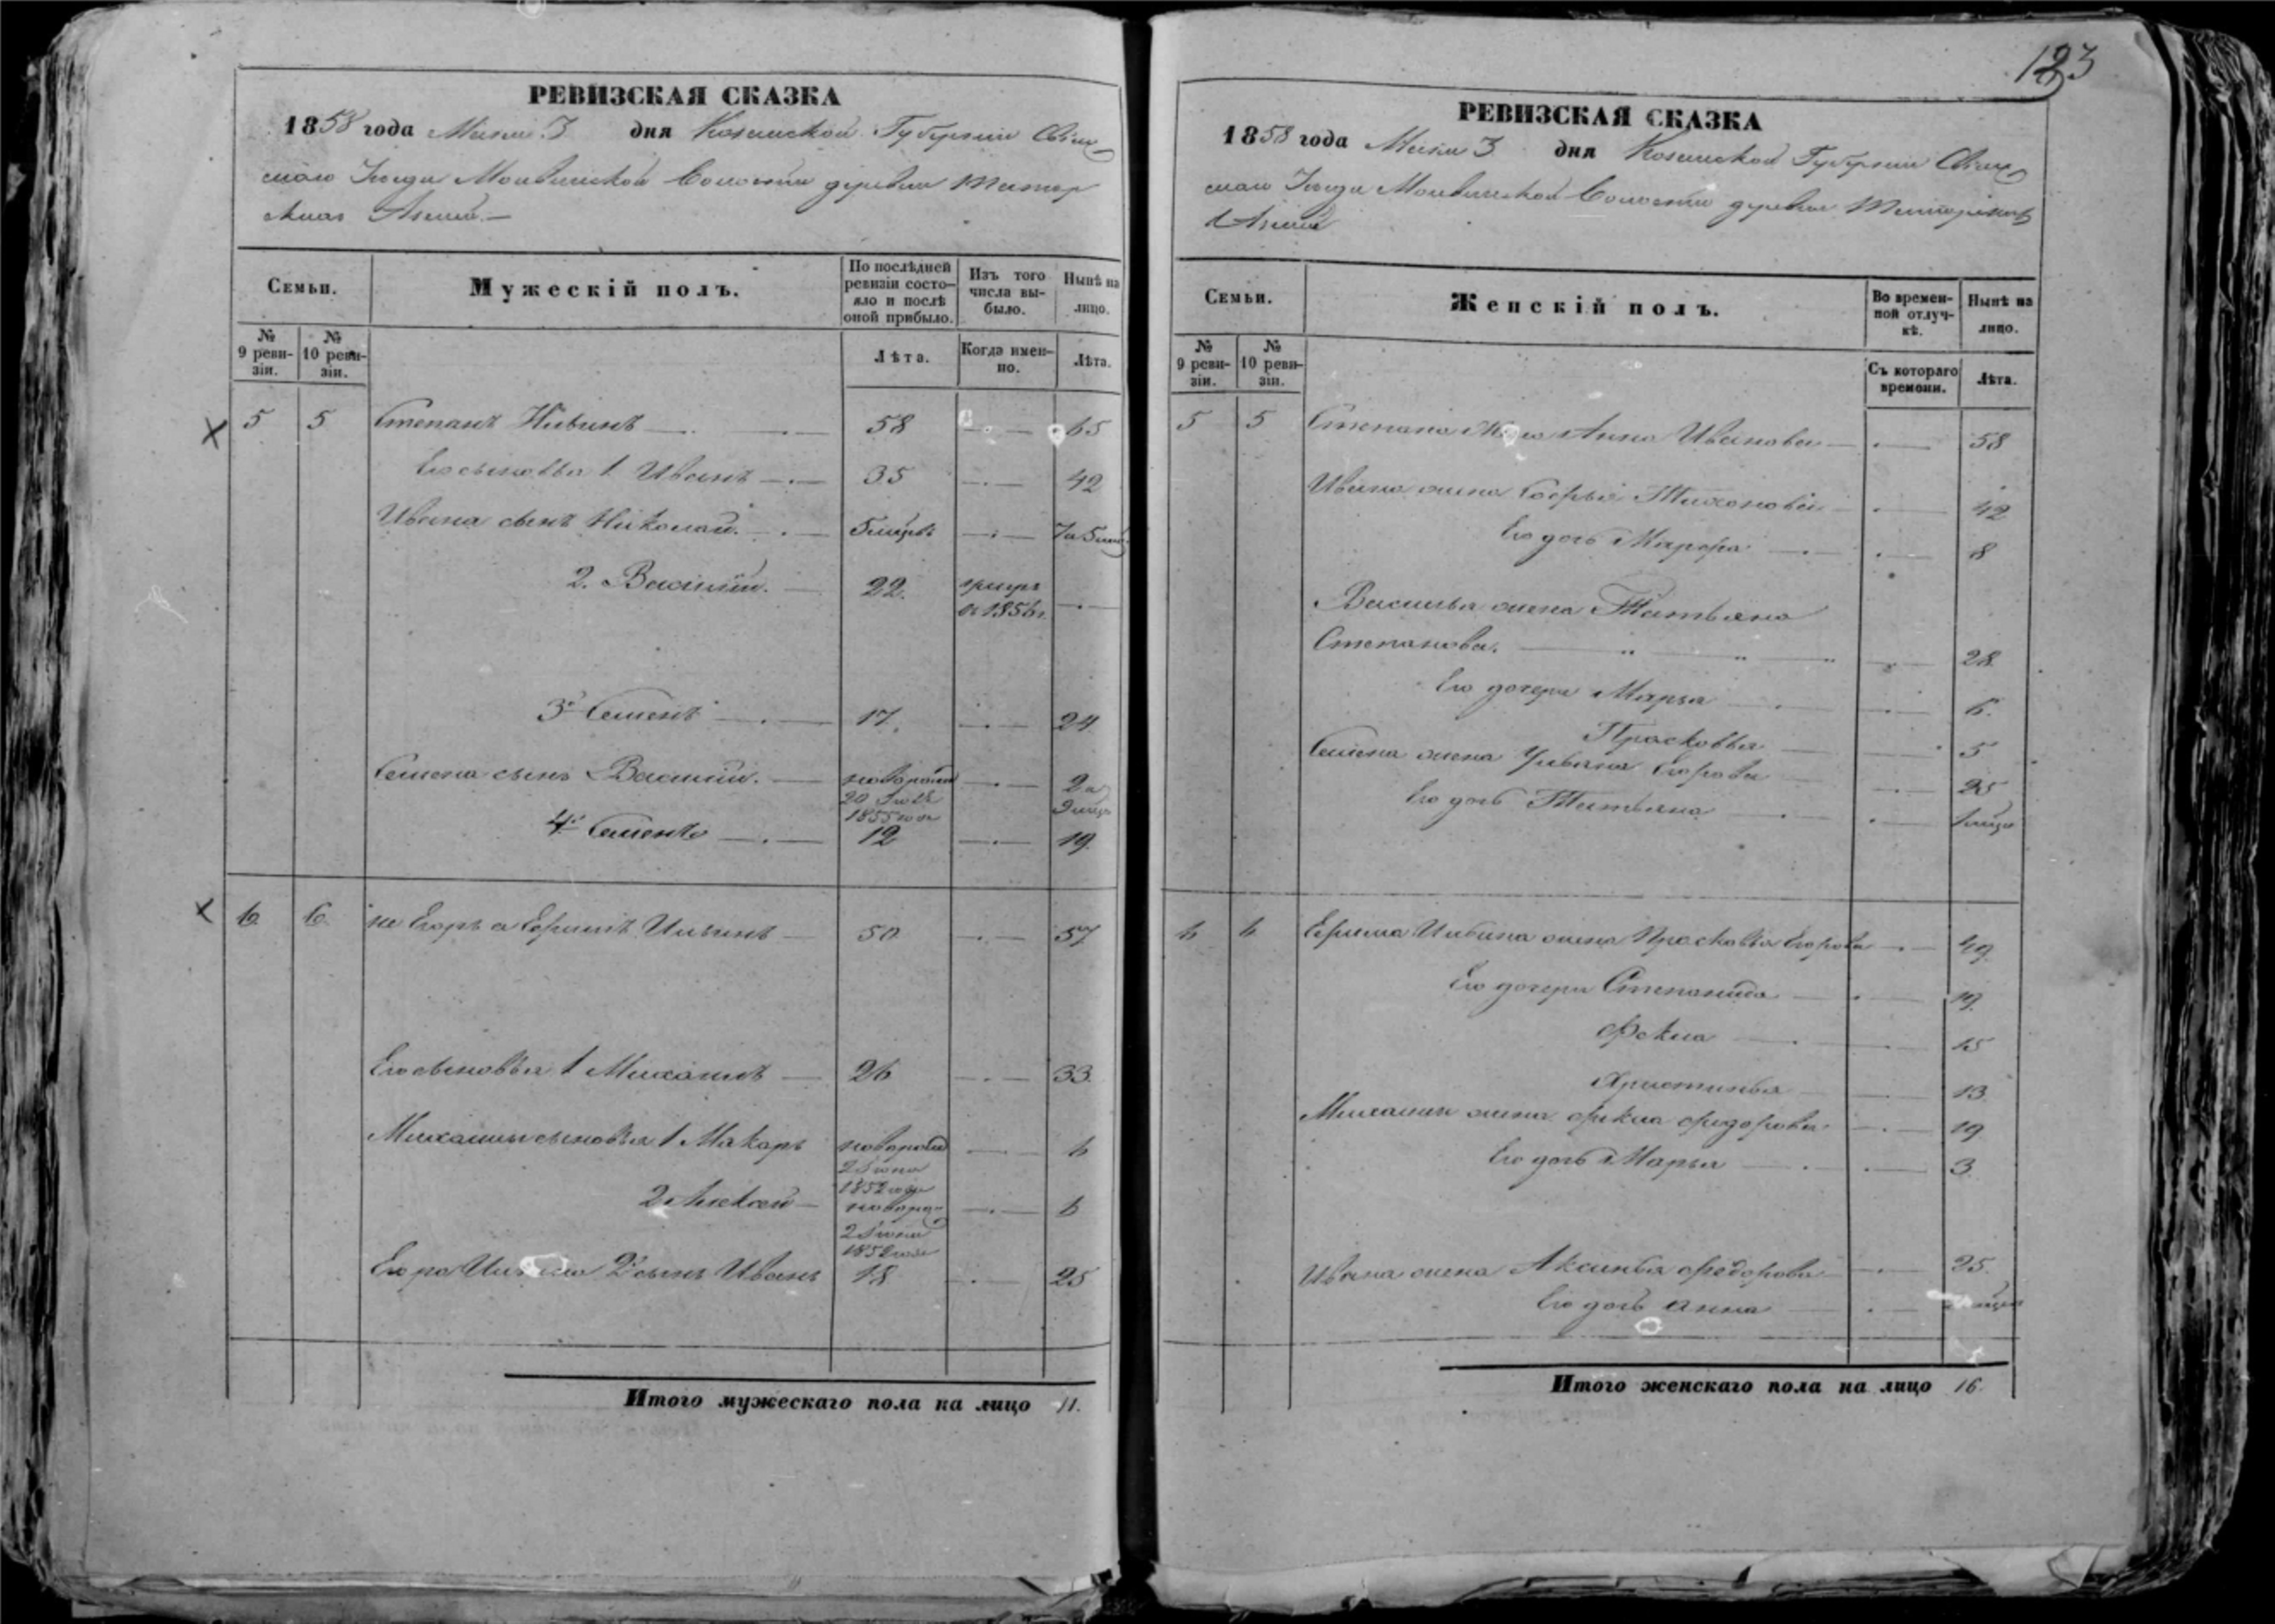 123
РЕВИЗСКАЯ СКАЗКА
1858 года Маія 3 дня Казанской Губерніи Свіяж
скаго Уѣзда Моивишской Волости деревни Татар
скихъ Азелей.
Семьи.
Мужескій полъ.
По послѣдней ревизіи состояло и послѣ оной прибыло.
Изъ того числа выбыло.
Нынѣ на лицо.
№ 9 ревизіи.
№ 10 ревизіи.
Лѣта.
Когда именно.
Лѣта.
5 5 Степанъ 58 65
Его сыновья 1 Иванъ 35 42
Ивана сынъ Николай. 5 мцовъ 7 и 5 мц
2. Василій. 22. умеръ
въ 1856 г.
3й Семенъ 17. 24
Семена сынъ Василій. новорожд 2 и
20 1855 года 9 мцв
4й Семенъ 12 19.
6. 6. не Егоръ а Ефимъ Ильинъ 50 57
Его сыновья 1 Михаилъ 26 33.
Михаилы сыновья 1 Макаръ новорожд 6
2 Іюня
1852 года
2 Алексей новорож 6
2 Іюня
1852 года
Егора Ильина 2й сынъ Иванъ 18 25
Итого мужескаго пола на лицо 11.
РЕВИЗСКАЯ СКАЗКА
1858 года Маія 3 дня Казанской Губерніи Свіяж
скаго Уѣзда Моивишской Волости деревни Татарскихъ
Азелей
Семьи.
Женскій полъ.
Во временной отлучкѣ.
Нынѣ на лицо.
№ 9 ревизіи.
№ 10 ревизіи.
Съ котораго времени.
Лѣта.
5 5 Степана жена Анна Иванова 58
Ивана жена Софья Тихонова 42
Его дочь Марфа 8
Василья жена Татьяна
Степанова. 28.
Его дочери Марья 6.
Прасковья 5
Семена жена Ульяна Егорова 25
Его дочь Татьяна 1 мцъ
6 6 Ефима Ильина жена Прасковья Егорова 49.
Его дочери Степанида 19.
Фекла 15
Христинья 13.
Михаилы жена Фекла Федорова 19
Его дочь Марья 3.
Ивана жена Аксинья Федорова 25.
Его дочь Анна
Итого женскаго пола на лицо 16.